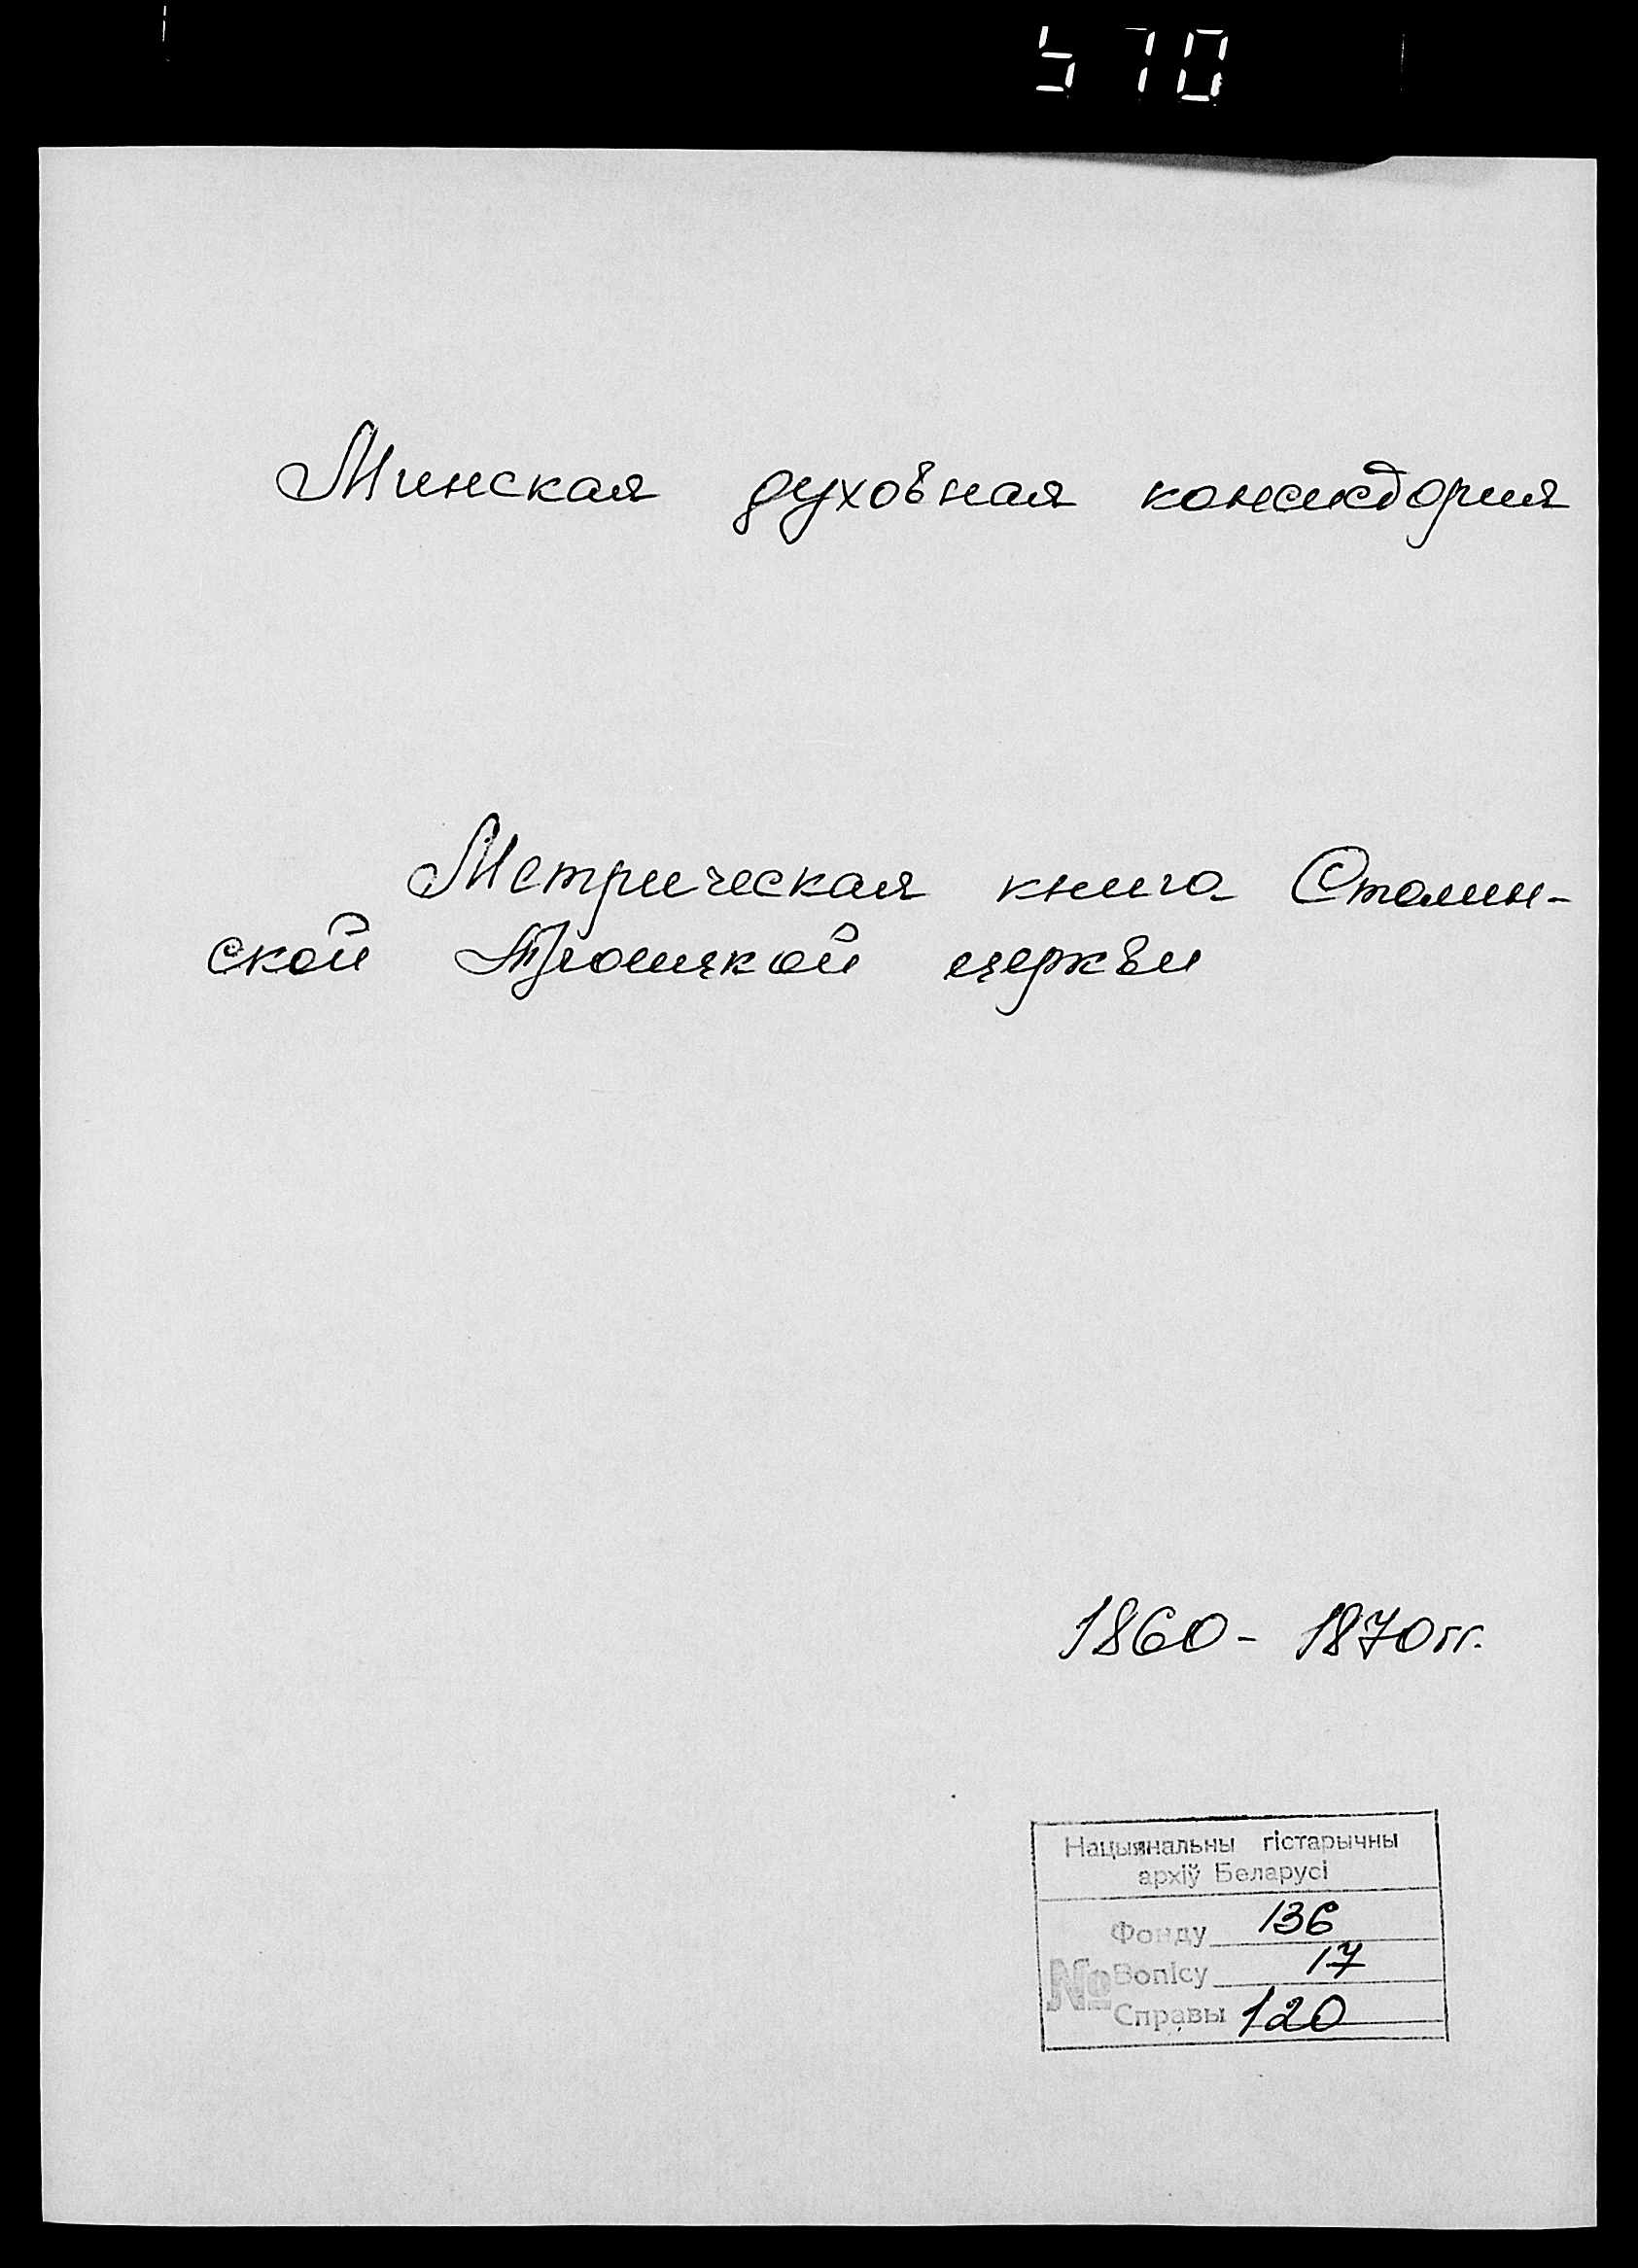 570
Минская духовная консистория
Метрическая книга Столин-
ской Троицкой церкви
1860 - 1870 гг.
Нацыянальны гістарычны
архіў Беларусі
Фонду 136
№ Вопісу 17
Справы 120